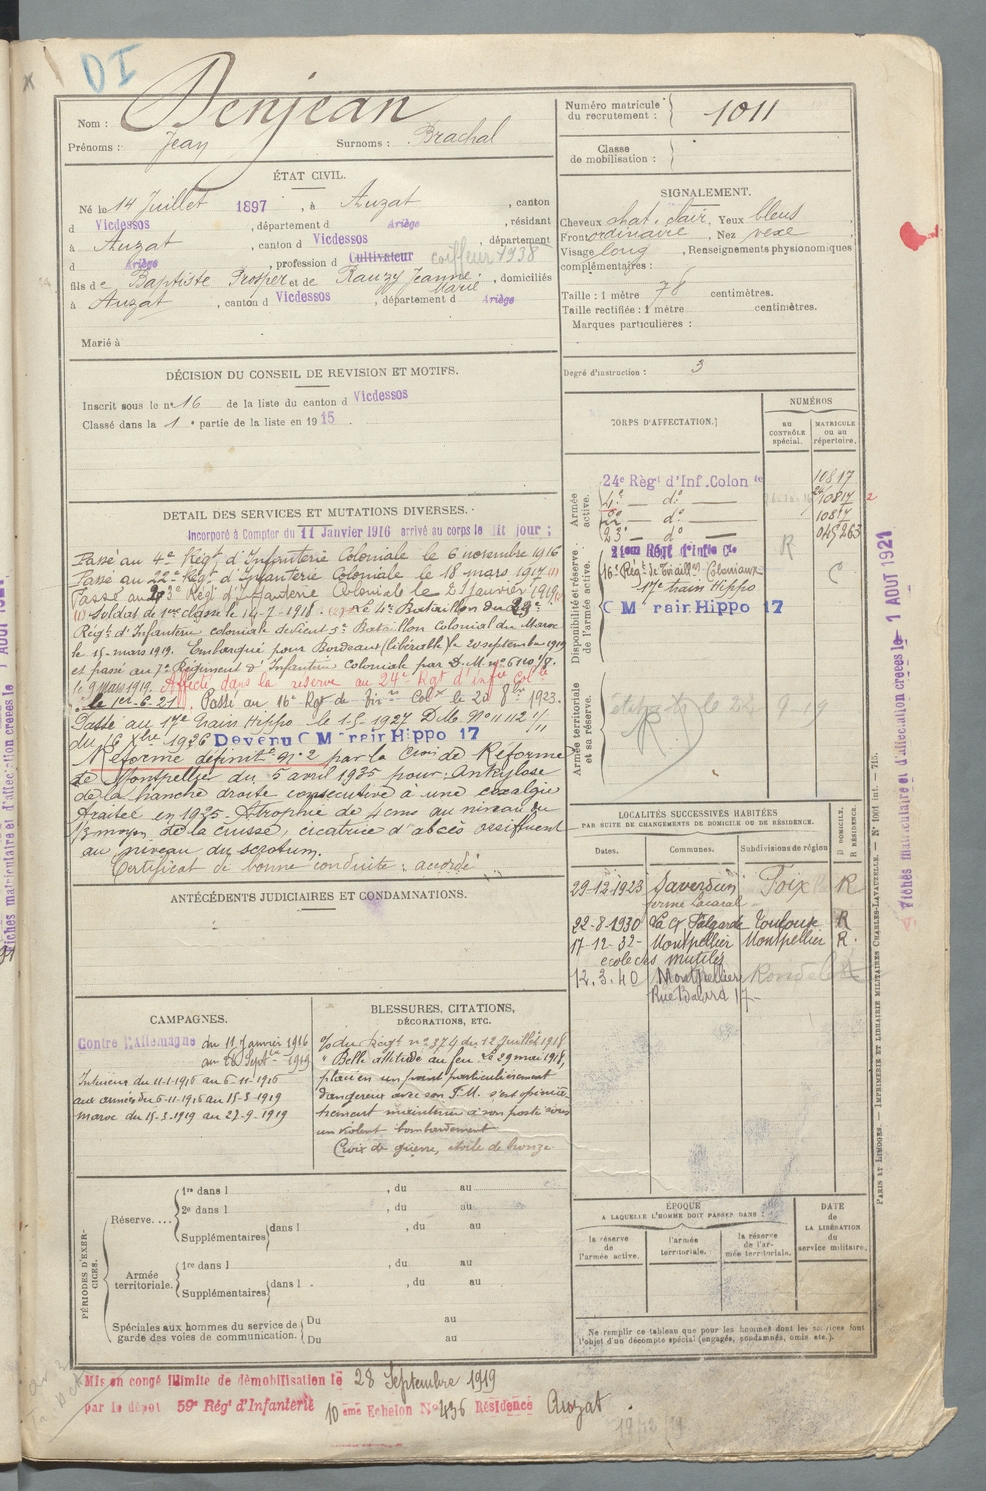 DI
Nom : Denjean
Prénoms : Jean Surnoms : Brachal
Numéro matricule du recrutement : 1011
Classe de mobilisation :
ÉTAT CIVIL.
Né le 14 Juillet 1897, à Auzat, canton
d Vicdessos, département d Ariège, résidant
à Auzat, canton d Vicdessos, département
d Ariège, profession d Cultivateur coiffeur 1938
fils de Baptiste Prosper et de Rauzy Jeanne Marie, domiciliés
à Auzat, canton d Vicdessos, département d Ariège
Marié à
SIGNALEMENT.
Cheveux chat. clair, Yeux bleus,
Front ordinaire, Nez vexe,
Visage long, Renseignements physionomiques
complémentaires :
Taille : 1 mètre 78 centimètres.
Taille rectifiée : 1 mètre centimètres.
Marques particulières :
Degré d'instruction : 3
DÉCISION DU CONSEIL DE REVISION ET MOTIFS.
Inscrit sous le n° 16 de la liste du canton d Vicdessos
Classé dans la 1e partie de la liste en 1915.
DETAIL DES SERVICES ET MUTATIONS DIVERSES.
Incorporé à Compter du 11 Janvier 1916 arrivé au corps le dit jour ;
Passé au 4e Régt d'Infanterie Coloniale le 6 novembre 1916
Passé au 22e Régt d'Infanterie Coloniale le 18 mars 1917 (1)
Passé au 23e Régt d'Infanterie Coloniale le 21 janvier 1919
(1) Soldat de 1ere classe le 14-7-1918. Le 4e Bataillon du
Régt d'Infanterie coloniale devient 5e Bataillon Colonial du Maroc
le 15 mars 1919. Embarqué pour Bordeaux (libérable) le 20 septembre 1919
et passé au 7e Régiment d'Infanterie coloniale par D.M. n°
le 9 Mars 1919. Affecté dans la réserve au 24e Rgt d'infie Colle
le 1er-6-21. Passé au 16e Rgt de Tirrs Colx le 20 8bre 1923.
Passé au 17e train Hippo le 1-5-1927 D.M. N° 11112 1/11
du 16 Xbre 1926 Devenu C M rair Hippo 17
Réformé définitt N° 2 par la Cion de Réforme
de Montpellier du 5 avril 1935 pour : Ankylose
de la hanche droite consécutive à une coxalgie
traitée en 1925. Atrophie de 4 cms au niveau du
1/3 moyen de la cuisse, cicatrice d'abcès ossifluent
au niveau du scrotum.
Certificat de bonne conduite : accordé
CORPS D'AFFECTATION.
NUMÉROS
au CONTRÔLE spécial.
MATRICULE ou au répertoire.
Armée active.
24e Régt d'Inf. Colon le 10817
4e do 10817
22e do 10817
23e do 045263
Disponibilité et réserve de l'armée active.
21em Régt d'Infie Cle R
16e Régt de Tiraillrs Coloniaux C
17e train Hippo
C M rair Hippo 17
Armée territoriale et sa réserve.
R
LOCALITÉS SUCCESSIVES HABITÉES
PAR SUITE DE CHANGEMENTS DE DOMICILE OU DE RÉSIDENCE.
Dates. Communes. Subdivisions de région D DOMICILE. R RÉSIDENCE.
29-12-1923 Saverdun Foix R
ferme Lacaral
22-8-1930 La Cx Falgarde Toulouse R
17-12-32- Montpellier Montpellier R.
école des mutilés
12.3.40 Montpellier
Rue Balard 17-
ANTÉCÉDENTS JUDICIAIRES ET CONDAMNATIONS.
CAMPAGNES.
Contre l'Allemagne du 11 janvier 1916
au 22 Septbre 1919
Intérieur du 11-1-1916 au 6-11-1916
aux armées du 6-11-1916 au 15-3-1919
Maroc du 15-3-1919 au 22-9-1919
BLESSURES, CITATIONS, DÉCORATIONS, ETC.
O/ du Régt n° 374 du 12 Juillet 1918
" Belle attitude au feu. Le 29 mai 1918,
placé en un point particulièrement
dangereux avec son F.M. s'est opiniâ-
trement maintenu à son poste sous
un violent bombardement
Croix de guerre, étoile de bronze
PÉRIODES D'EXERCICES.
Réserve....
1re dans l , du au
2e dans l , du au
Supplémentaires dans l , du au
Armée territoriale.
1re dans l , du au
Supplémentaires dans l , du au
Spéciales aux hommes du service de garde des voies de communication.
Du au
Du au
ÉPOQUE
A LAQUELLE L'HOMME DOIT PASSER DANS :
la réserve de l'armée active.
l'armée territoriale.
la réserve de l'armée territoriale.
DATE de LA LIBÉRATION du service militaire.
Ne remplir ce tableau que pour les hommes dont les services font
l'objet d'un décompte spécial (engagés, condamnés, omis, etc.).
Mis en congé illimité de démobilisation le 28 Septembre 1919
par le dépôt 59e Régt d'Infanterie 10eme Echelon N° 436 Résidence Auzat.
PARIS ET LIMOGES. — IMPRIMERIE ET LIBRAIRIE MILITAIRES CHARLES-LAVAUZELLE. — N° 1001 int. — 715.
Fiches matriculaire et d'affectation créées le 1 AOUT 1921